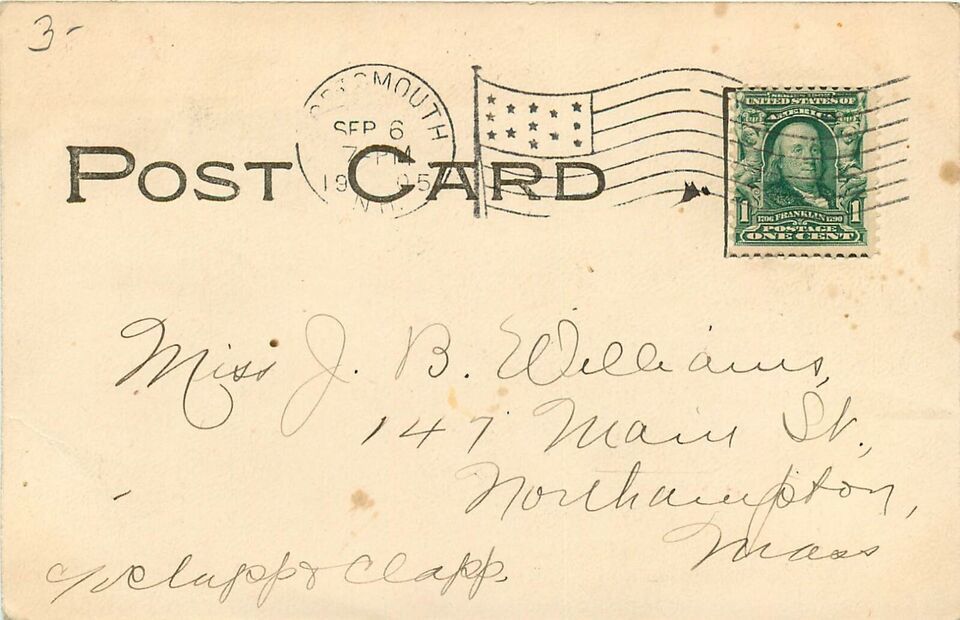 3-
PORTSMOUTH
SEP 6
7 PM
1905
N.H.
POST CARD
SERIES 1902
UNITED STATES OF
AMERICA
1 1706 FRANKLIN 1790 1
POSTAGE
ONE CENT
Miss J. B. Williams,
147 Main St.,
Northampton,
Mass
c/o Clapp & Clapp.